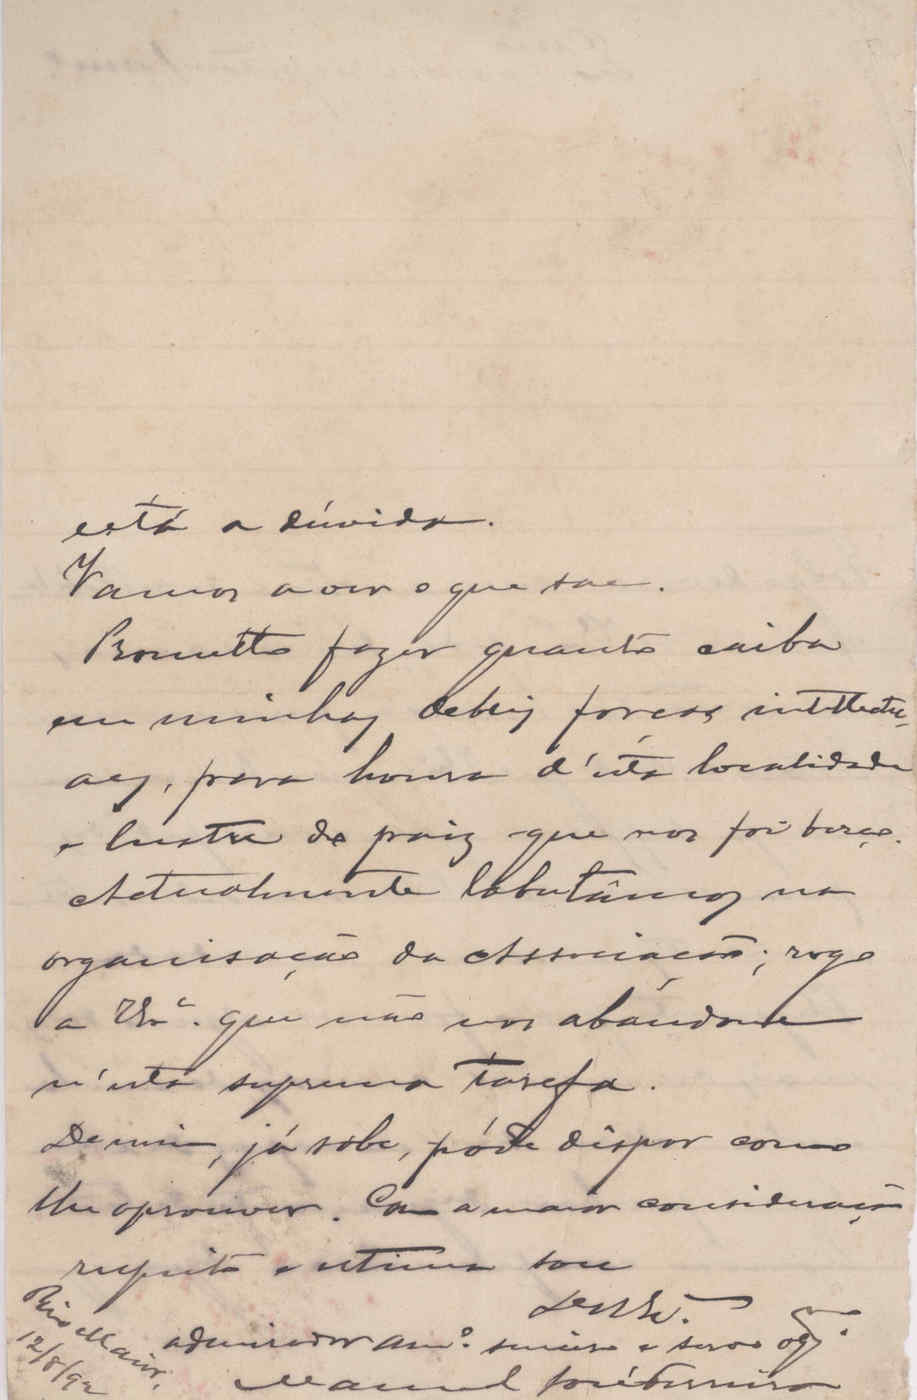 está a dúvida.
Vamos a ver o que sae.
Prometto fazer quanto caiba
em minhas debeis forças intellectu-
aes, para honra d'esta localidade
e lustre do paiz que nos foi berço.
Actualmente labutâmos na
organisação da Associação; rogo
a V. Ex.ª que não nos abandone
n'esta suprema tarefa.
De mim, já sabe, póde dispor como
lhe aprouver. Com a maior consideração
respeito e estima sou
De V. Ex.
admirador am.º sincero e servo obg.
Manuel José Ferreira
Rio Maior,
12/8/92